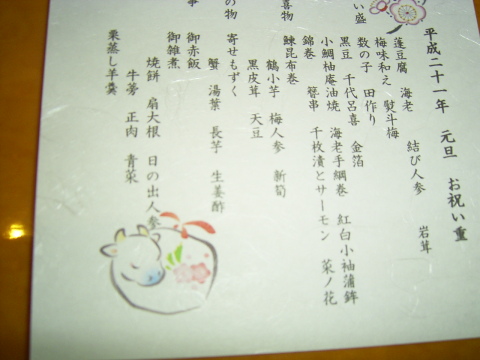 平成二十一年 元旦 お祝い重
い盛
蓬豆腐 海老 結び人参 岩茸
梅味和え 熨斗梅
数の子 田作り
黒豆 千代呂喜 金箔
小鯛柚庵油焼 海老手綱巻 紅白小袖蒲鉾
錦巻 簪串 千枚漬とサーモン 菜ノ花
鰊昆布巻
喜物
鶴小芋 梅人参 新筍
黒皮茸 天豆
の物
寄せもずく
蟹 湯葉 長芋 生姜酢
事
御赤飯
御雑煮
焼餅 扇大根 日の出人参
牛蒡 正肉 青菜
栗蒸し羊羹